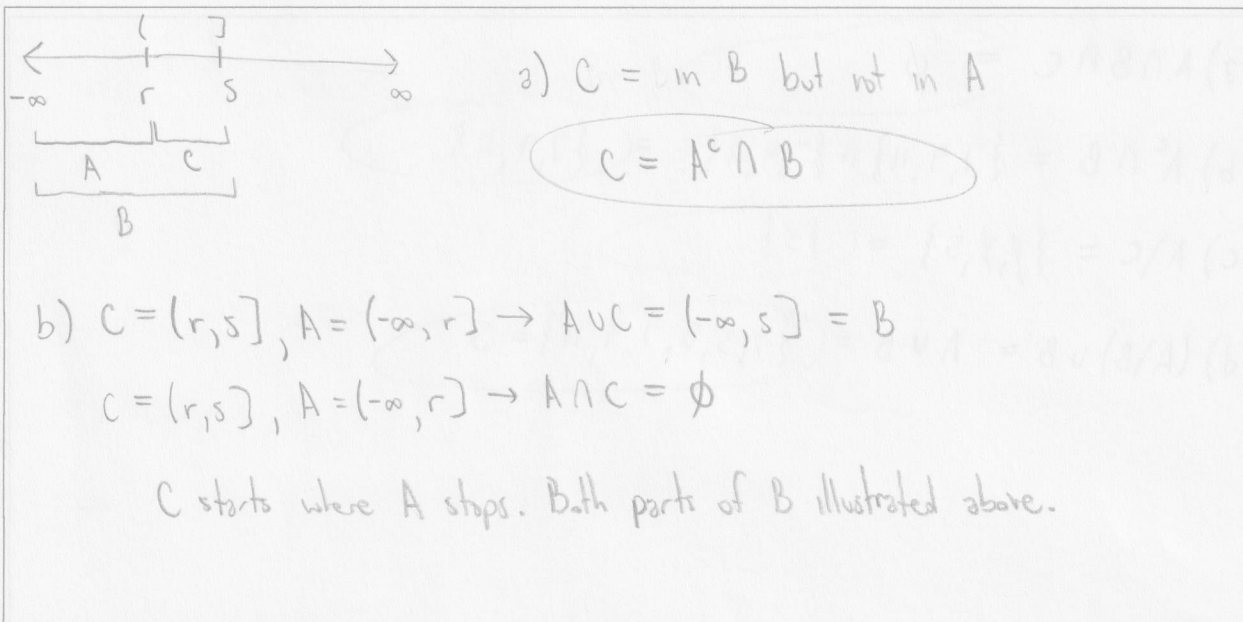 ( ]
-∞ r s ∞
A C
B
a) C = in B but not in A
C = Aᶜ ∩ B
b) C = (r,s], A = (-∞, r] → A∪C = (-∞, s] = B
C = (r,s], A = (-∞, r] → A∩C = ∅
C starts where A stops. Both parts of B illustrated above.